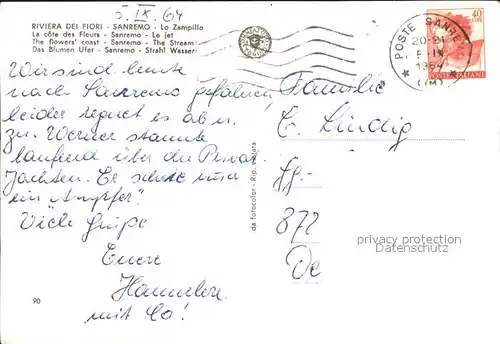 5. IX. 64
RIVIERA DEI FIORI - SANREMO - Lo Zampillo
La côte des Fleurs - Sanremo - Le jet
The flowers' coast - Sanremo - The Stream
Das Blumen Ufer - Sanremo - Strahl Wasser
Wir sind heute
nach Sanremo gefahren,
leider regnet es ab u.
zu. Werner staunte
laufend über die Privat
Jachten. Er
ein
Viele Grüße
Eure
Hannelore
mit Co!
90
da fotocolor - Rip. vietata
POSTE SANREMO
20-21
5 IX
1964
(IM)
40
POSTE ITALIANE
Familie
E. Lindig
872
privacy protection
watermark